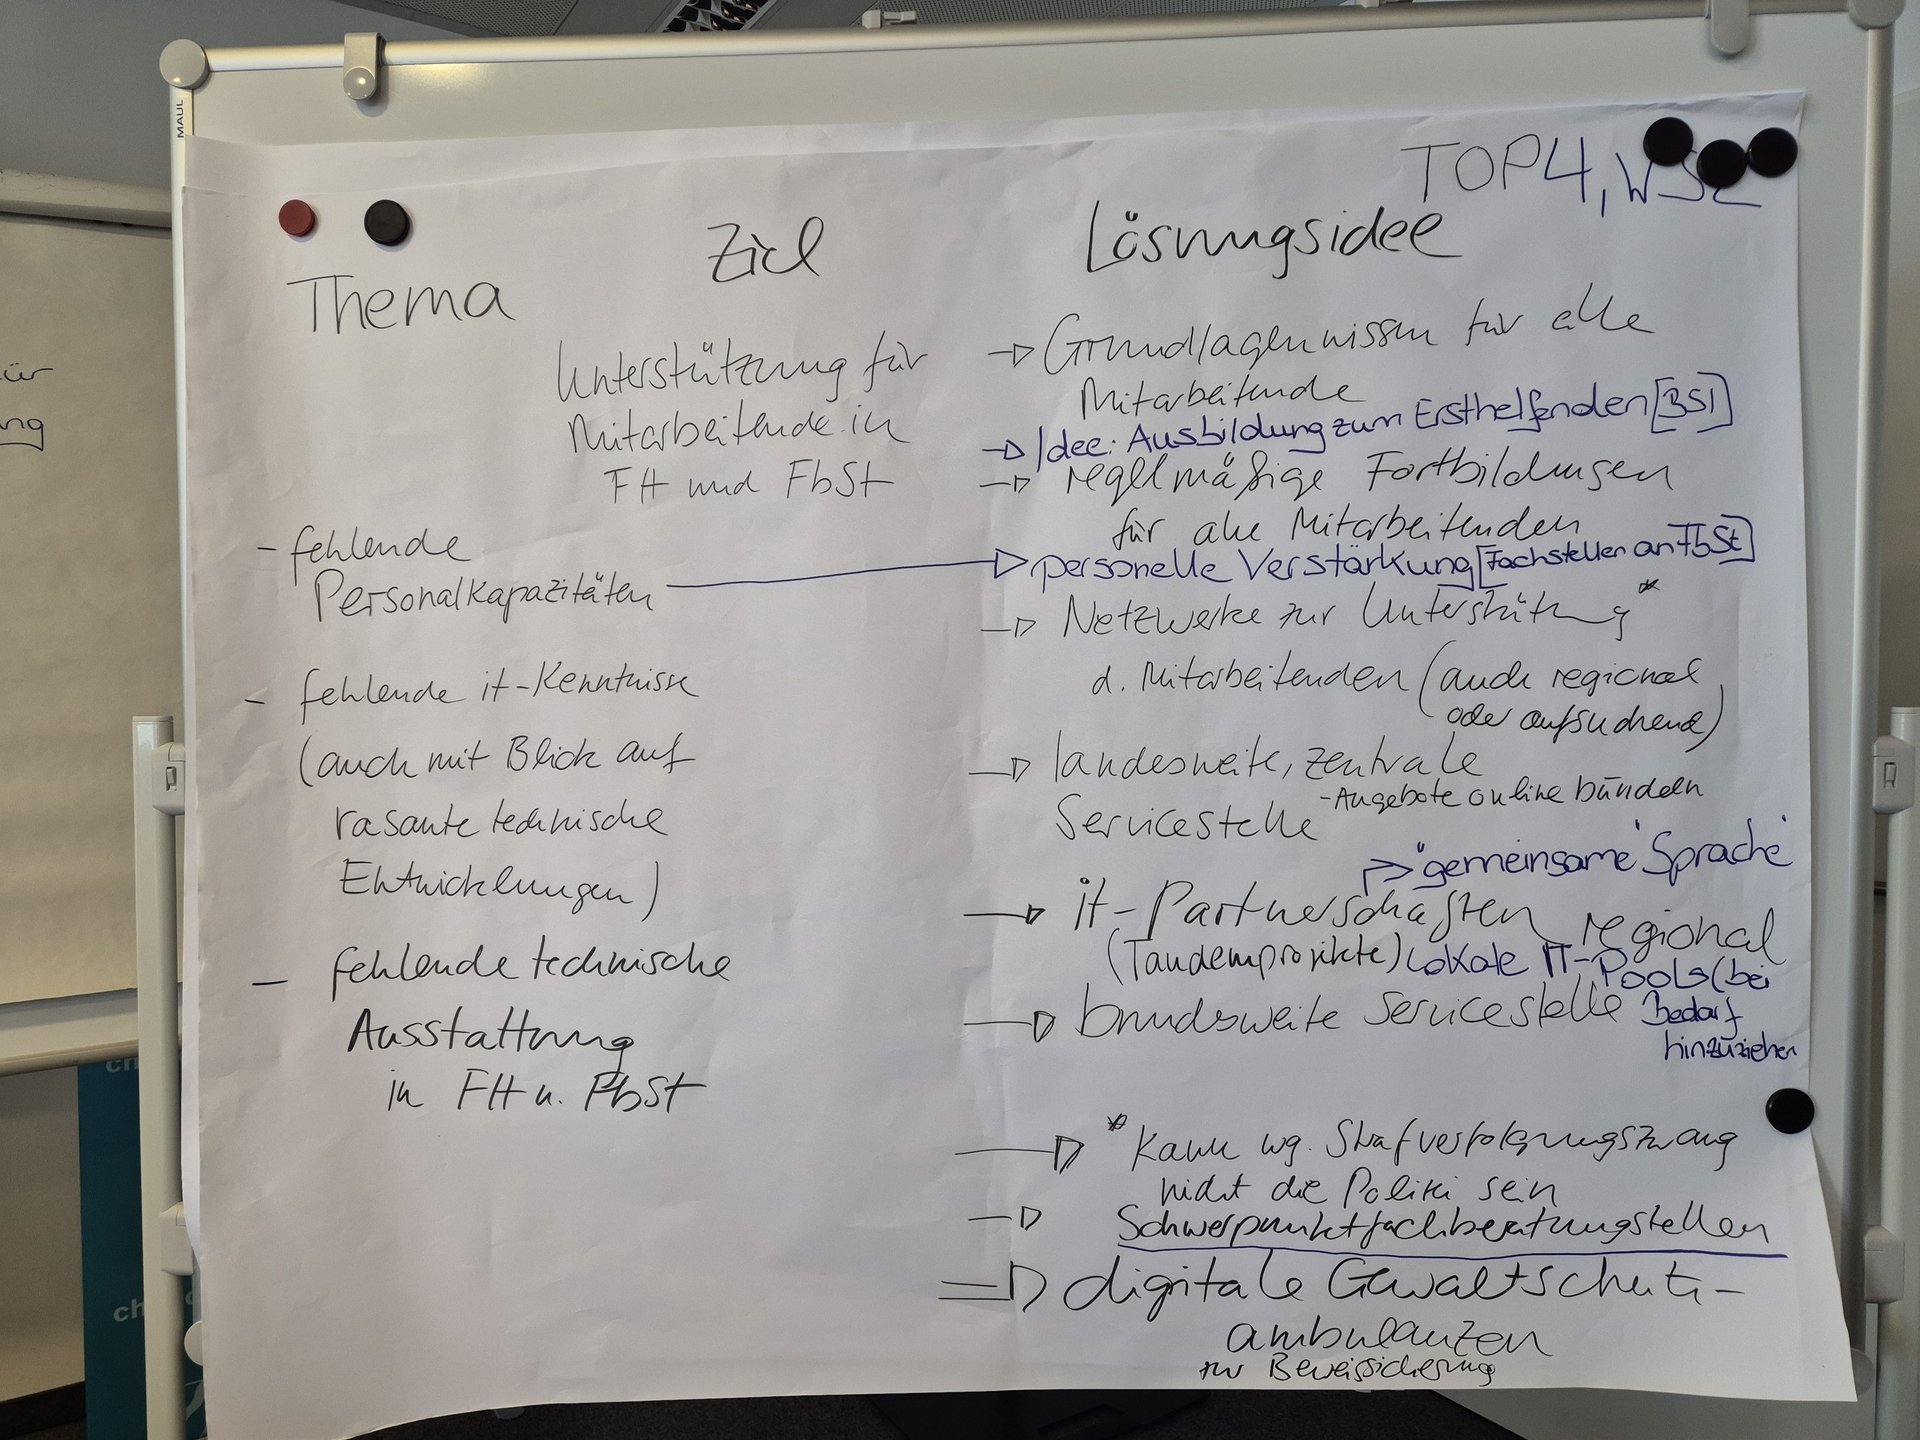 MAUL
TOP4, WS2
Thema
Ziel
Lösungsidee
Unterstützung für
Mitarbeitende in
FH und FbSt
- fehlende
Personalkapazitäten
- fehlende it-Kenntnisse
(auch mit Blick auf
rasante technische
Entwicklungen)
- fehlende technische
Ausstattung
in FH u. FbSt
→ Grundlagenwissen für alle
Mitarbeitende
→ Idee: Ausbildung zum Ersthelfenden [BSI]
→ regelmäßige Fortbildungen
für alle Mitarbeitenden
→ personelle Verstärkung [Fachstellen an FbSt]
→ Netzwerke zur Unterstützung *
d. Mitarbeitenden (auch regional
oder aufsuchend)
→ landesweite, zentrale
Servicestelle
- Angebote online bündeln
→ "gemeinsame 'Sprache'
→ it-Partnerschaften regional
(Tandemprojekte) lokale IT-Pools (bei
Bedarf
hinzuziehen
→ bundesweite Servicestelle
→ * Kann wg. Strafverfolgungszwang
nicht die Polizei sein
→ Schwerpunktfachberatungsstellen
⇒ digitale Gewaltschutz-
ambulanzen
zur Beweissicherung
ür
ng
ch
ch